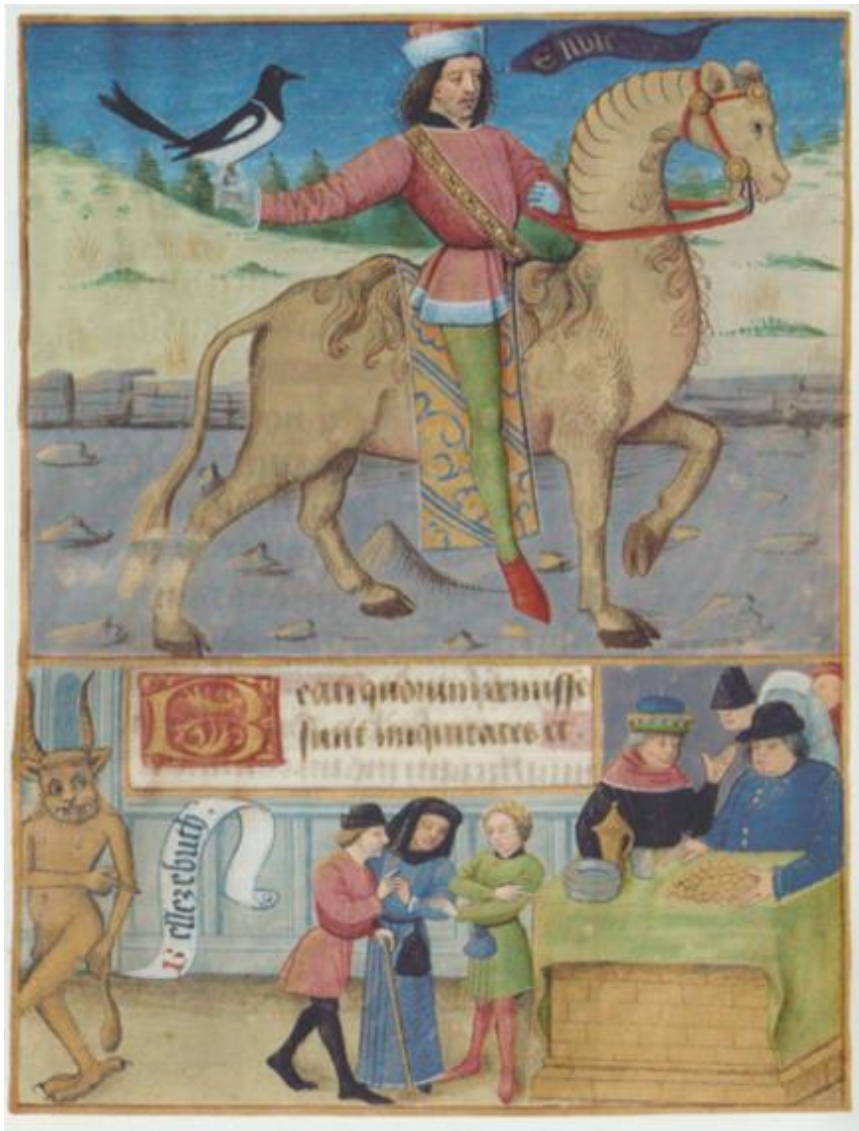 Envie
Beati quorum remisse
sunt iniquitates et
Bellezebuth